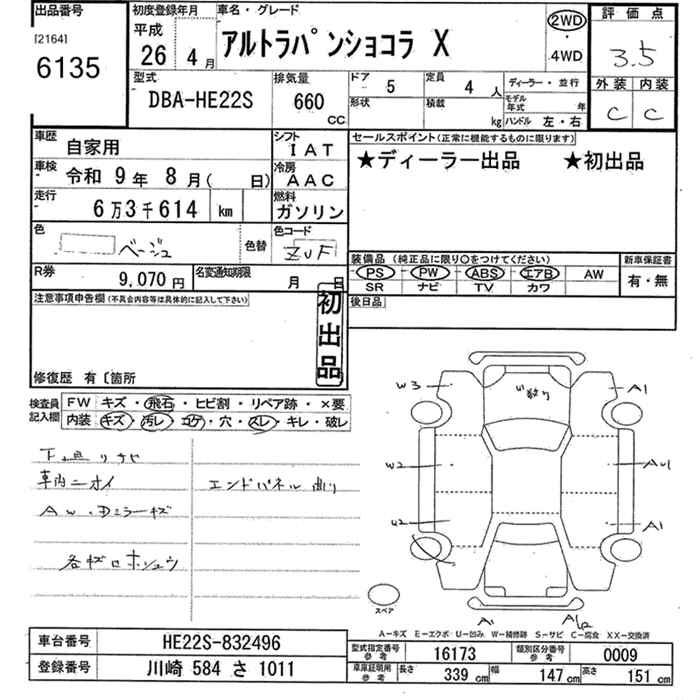 出品番号
[2164]
6135
初度登録年月
平成
26年 4月
車名・グレード
アルトラパンショコラ X
2WD
・
4WD
評価点
3.5
外装 内装
C C
型式
DBA-HE22S
排気量
660
CC
ドア
5
形状
定員
4人
積載
kg
ディーラー・並行
モデル年式 年
ハンドル 左・右
車歴
自家用
シフト
IAT
車検
令和 9年 8月( 日)
冷房
AAC
走行
6万3千614 km
燃料
ガソリン
色
ベージュ
色替
色コード
ZUF
R券
9,070円
名変通知期限
月 日
セールスポイント(正常に機能するものに限り)
★ディーラー出品 ★初出品
装備品(純正品に限り〇をつけてください)
PS PW ABS エアB AW
SR ナビ TV カワ
新車保証書
有・無
後日品
注意事項申告欄(不具合内容等は具体的に記入して下さい)
初出品
修復歴 有〔箇所
検査員記入欄
FW キズ・飛石・ヒビ割・リペア跡・×要
内装 キズ・汚レ・コゲ・穴・スレ・キレ・破レ
車内ニオイ
エンドパネル曲り
W3
A1
W2
AU1
U2
A1
スペア
A1
A-キズ E-エクボ U-凹み W-補修跡 S-サビ C-腐食 XX-交換済
車台番号
HE22S-832496
登録番号
川崎 584 さ 1011
型式指定番号
参考
16173
類別区分番号
参考
0009
車庫証明用
参考
長さ 339 cm 幅 147 cm 高さ 151 cm